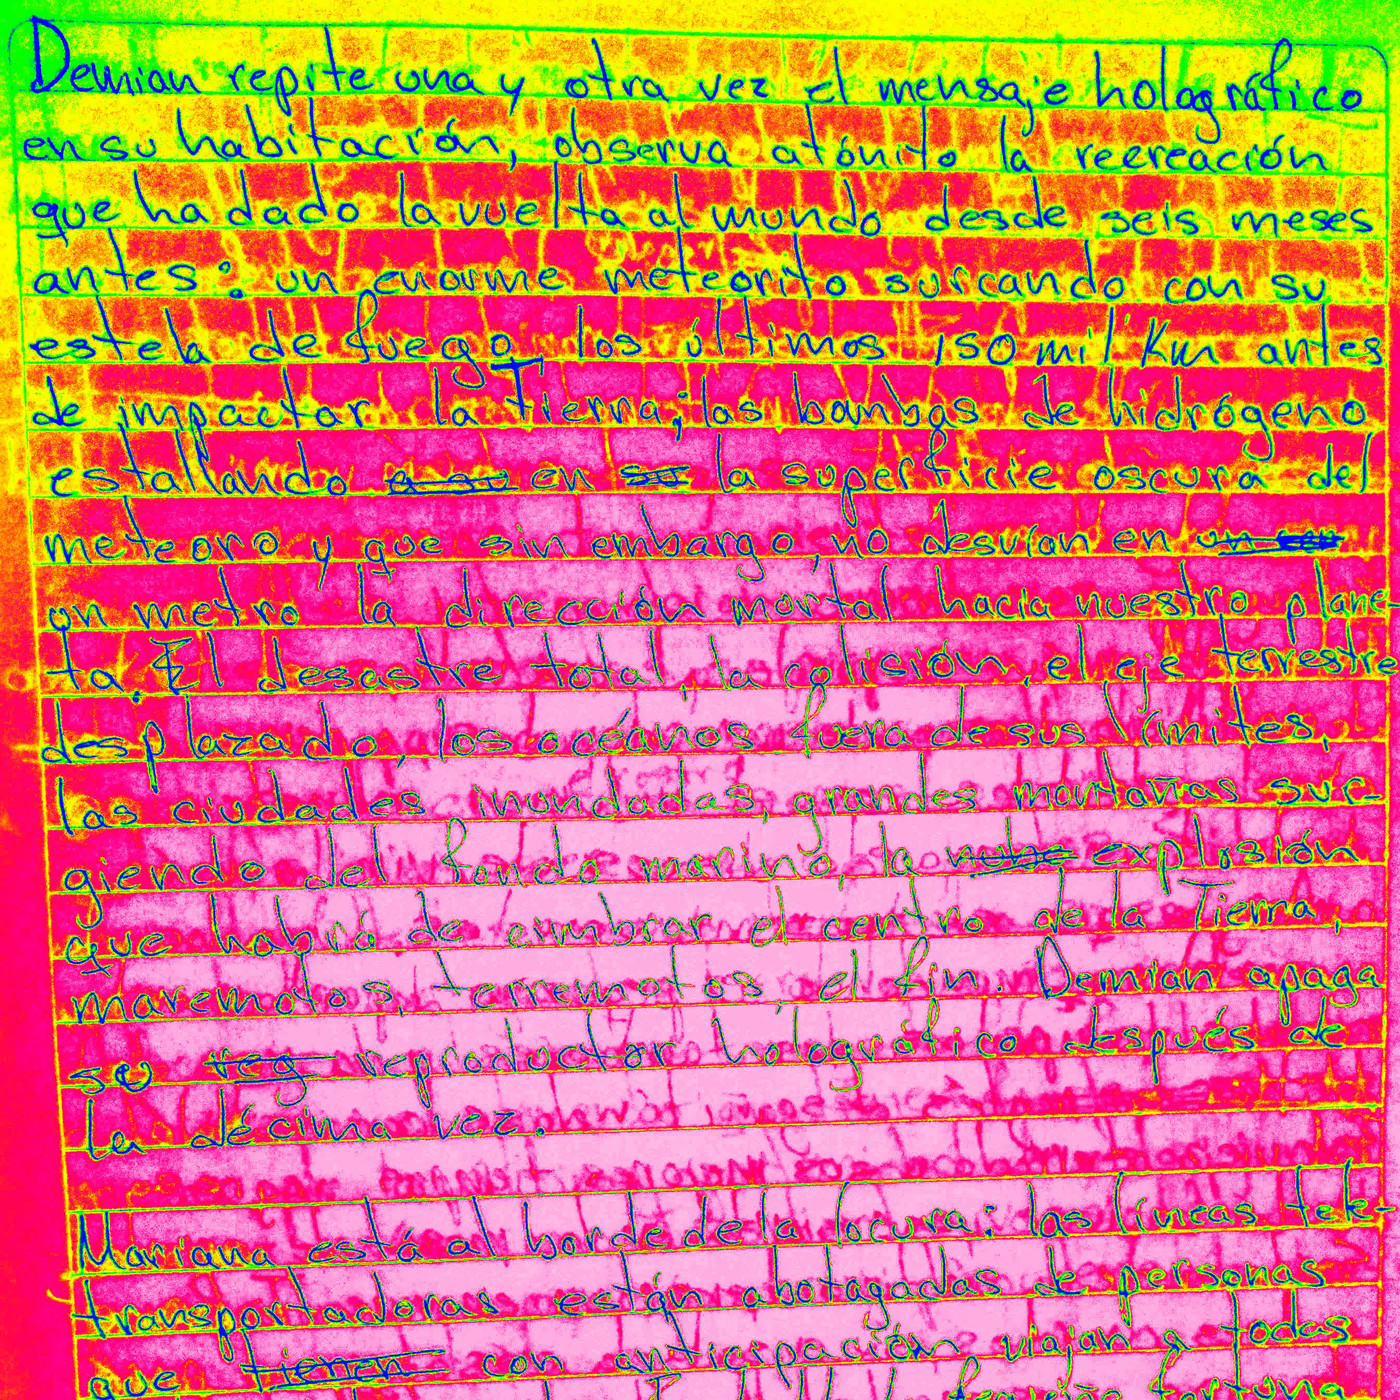 Demian repite una y otra vez el mensaje holográfico
en su habitación, observa atónito la recreación
que ha dado la vuelta al mundo desde seis meses
antes: un enorme meteorito surcando con su
estela de fuego los últimos 150 mil Km antes
de impactar la Tierra; las bombas de hidrógeno
estallando a su en su la superficie oscura del
meteoro y que sin embargo, no desvían en un
un metro la dirección mortal hacia nuestro plane-
ta. El desastre total, la colisión, el eje terrestre
desplazado, los océanos fuera de sus límites,
las ciudades inundadas, grandes montañas sur-
giendo del fondo marino, la nube explosión
que habrá de cimbrar el centro de la Tierra,
maremotos, terremotos, el fin. Demian apaga
su reg reproductor holográfico después de
la décima vez.
Mariana está al borde de la locura: las líneas tele-
transportadoras están abotagadas de personas
que tienen con anticipación viajan a todas
fortuna